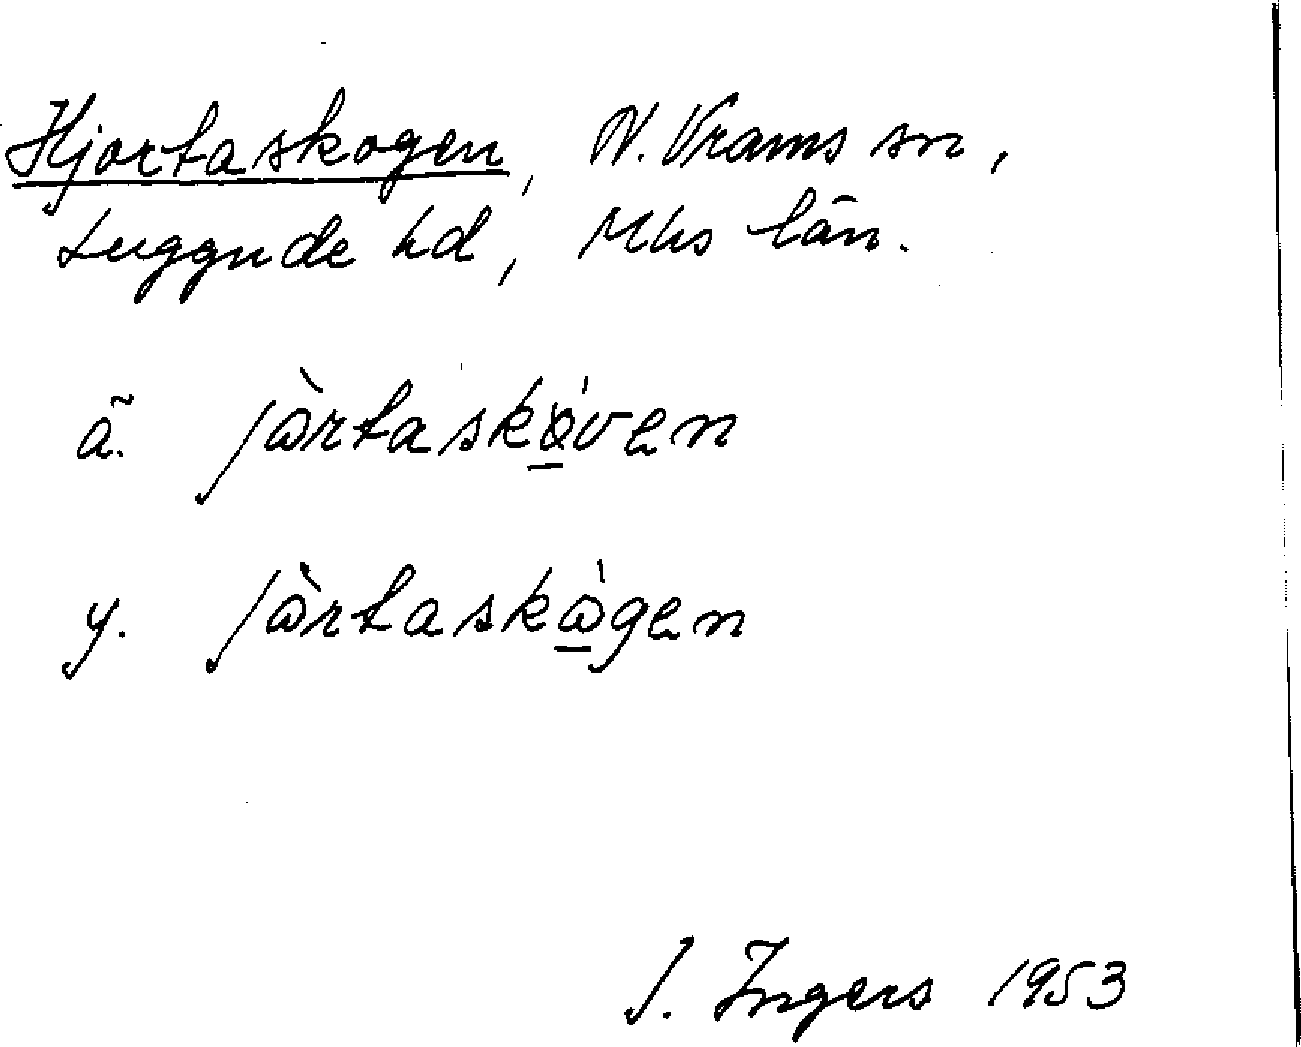 Hjortaskogen, N. Vrams sn,
Luggude hd, Mhs län.
ä. jòrtaskǿven
y. jòrtaskògen
I. Ingers 1953